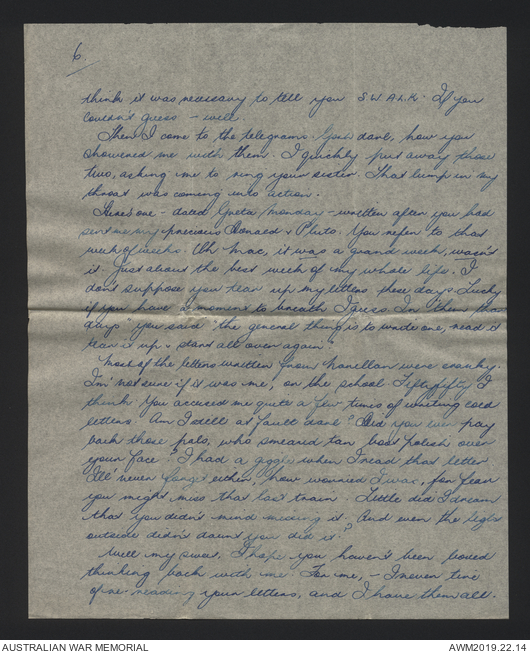 6.
think it was necessary to tell you S.W.A.L.K. If you
couldn't guess - well.
Then I come to the telegrams. Gosh darl, how you
showered me with them. I quickly put away those
two, asking me to ring your sister. That lump in my
throat was coming into action.
Here's one - dated Greta Monday - written after you had
sent me my precious Donald & Pluto. You refer to that
week of weeks. Oh Mac, it was a grand week, wasn't
it. Just about the best week of my whole life. I
don't suppose you tear up my letters these days. Lucky
if you have a moment to breath I guess. In "them
days" you said "the general thing is to write one, read it
tear it up & start all over again."
Most of the letters written from Narellan were cranky.
I'm not sure if it was me, or the school. Fifty fifty I
think. You accused me quite a few times of writing cold
letters. Am I still at fault darl? Did you ever pay
back those pals, who smeared tan boot polish over
your face? I had a giggle when I read that letter.
I'll never forget either, how worried I was, for fear
you might miss that last train. Little did I dream
that you didn't mind missing it. And even the light
outside didn't daunt you did it?
Well my sweet, I hope you haven't been bored
thinking back with me. For me, - I never tire
of re-reading your letters, and I have them all.
AUSTRALIAN WAR MEMORIAL
AWM2019.22.14